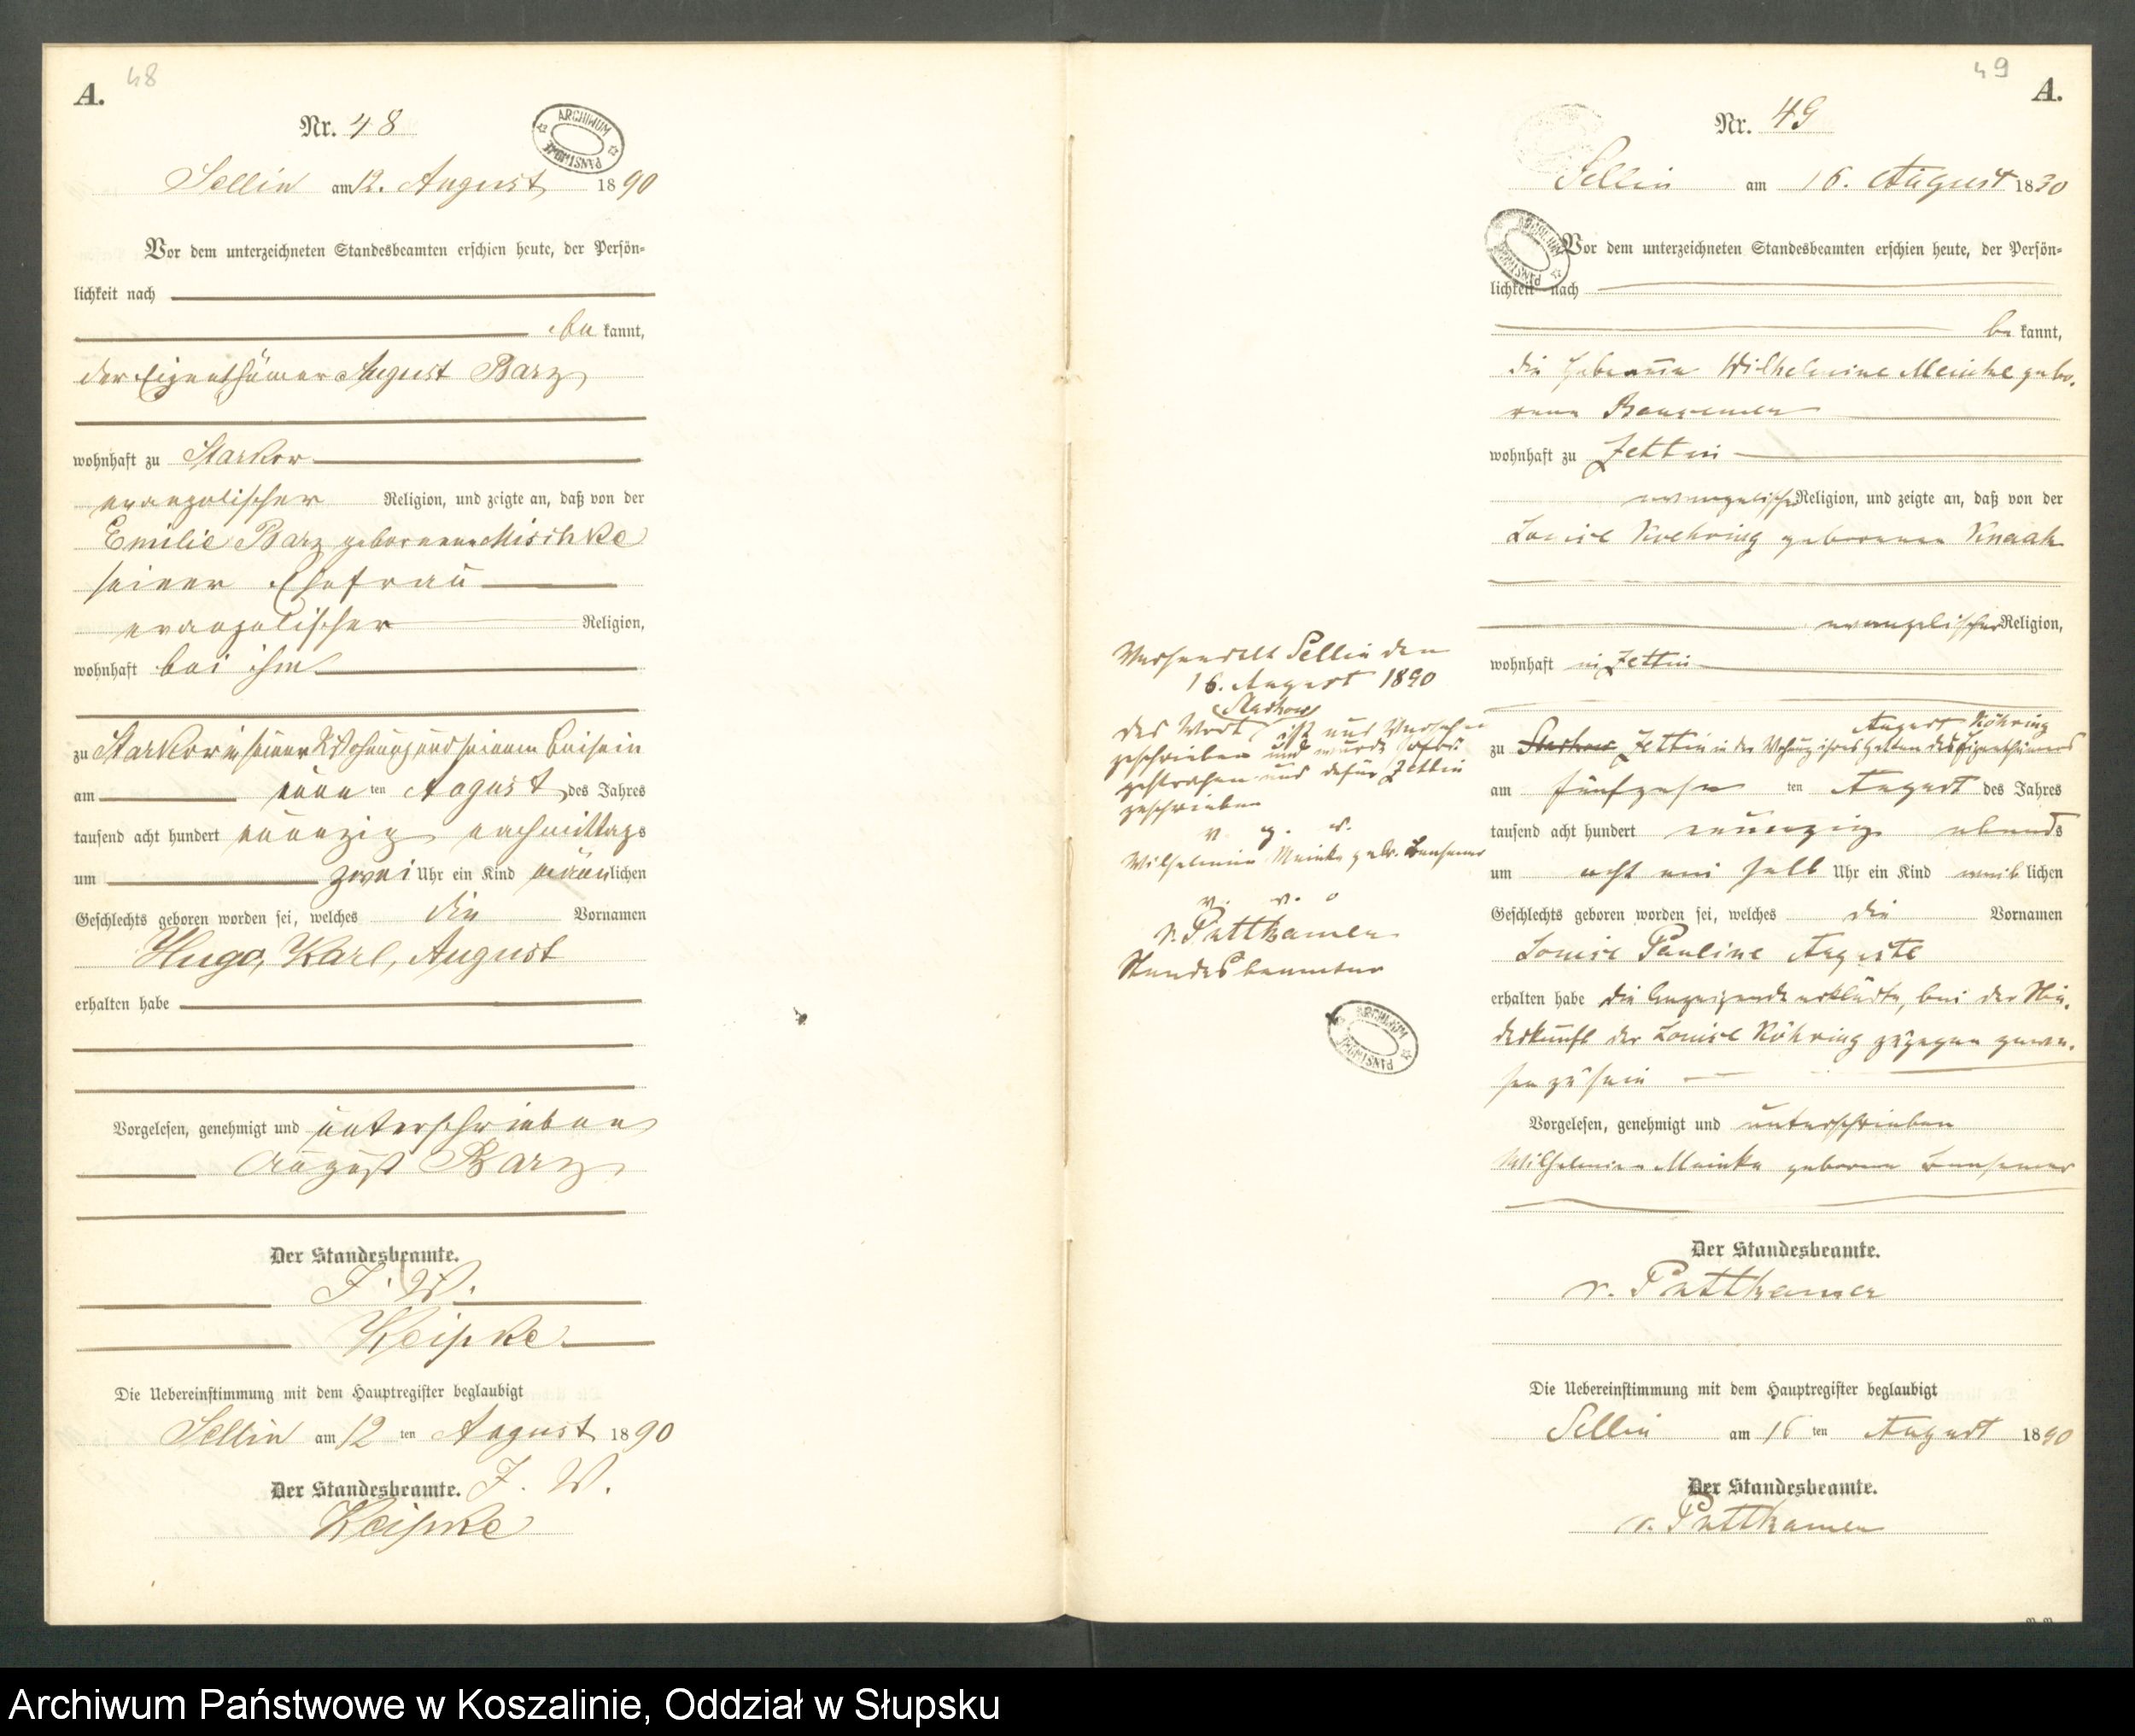 A.
48
Nr. 48
ARCHIWUM PAŃSTWOWE
Sellin am 12. August 1890
Vor dem unterzeichneten Standesbeamten erschien heute, der Persön-
lichkeit nach
be kannt,
der Eigenthümer August Barz
wohnhaft zu Starkow
evangelischer Religion, und zeigte an, daß von der
Emilie Barz geborenen Mischke
seiner Ehefrau
evangelischer Religion,
wohnhaft bei ihm
zu Starkow in seiner Wohnung und seinem Beisein
am neun ten August des Jahres
tausend acht hundert neunzig nachmittags
um zwei Uhr ein Kind männlichen
Geschlechts geboren worden sei, welches die Vornamen
Hugo, Karl, August
erhalten habe
Vorgelesen, genehmigt und unterschrieben
August Barz
Der Standesbeamte.
J. W.
Keipke
Die Uebereinstimmung mit dem Hauptregister beglaubigt
Sellin am 12 ten August 1890
Der Standesbeamte. J. W.
Keipke
49
A.
Nr. 49
Sellin am 16. August 1890
ARCHIWUM PAŃSTWOWE
Vor dem unterzeichneten Standesbeamten erschien heute, der Persön-
lichkeit nach
be kannt,
die Hebamme Wilhelmine Meinke gebo-
rene
wohnhaft zu Zettin
evangelischer Religion, und zeigte an, daß von der
Louise Koehring geborenen Knaak
evangelischer Religion,
wohnhaft in Zettin
August Röhring
zu Starkow Zettin in der Wohnung ihres Gatten des Eigenthümers
am fünfzehn ten August des Jahres
tausend acht hundert neunzig abends
um acht ein halb Uhr ein Kind weiblichen
Geschlechts geboren worden sei, welches die Vornamen
Louise Pauline Auguste
erhalten habe die Anzeigende erklärte, bei der Nie-
derkunft der Louise Röhring zugegen gewe-
sen zu sein
Vorgelesen, genehmigt und unterschrieben
Wilhelmine Meinke geborene
Der Standesbeamte.
v. Puttkamer
Die Uebereinstimmung mit dem Hauptregister beglaubigt
Sellin am 16 ten August 1890
Der Standesbeamte.
v. Puttkamer
Verhandelt Sellin den
16. August 1890
Starkow
das Wort ist aus Versehen
geschrieben und wurde sofort
gestrichen und dafür Zettin
geschrieben
v. g. u.
Wilhelmine Meinke geb.
v. Puttkamer
Standesbeamter
ARCHIWUM PAŃSTWOWE
Archiwum Państwowe w Koszalinie, Oddział w Słupsku